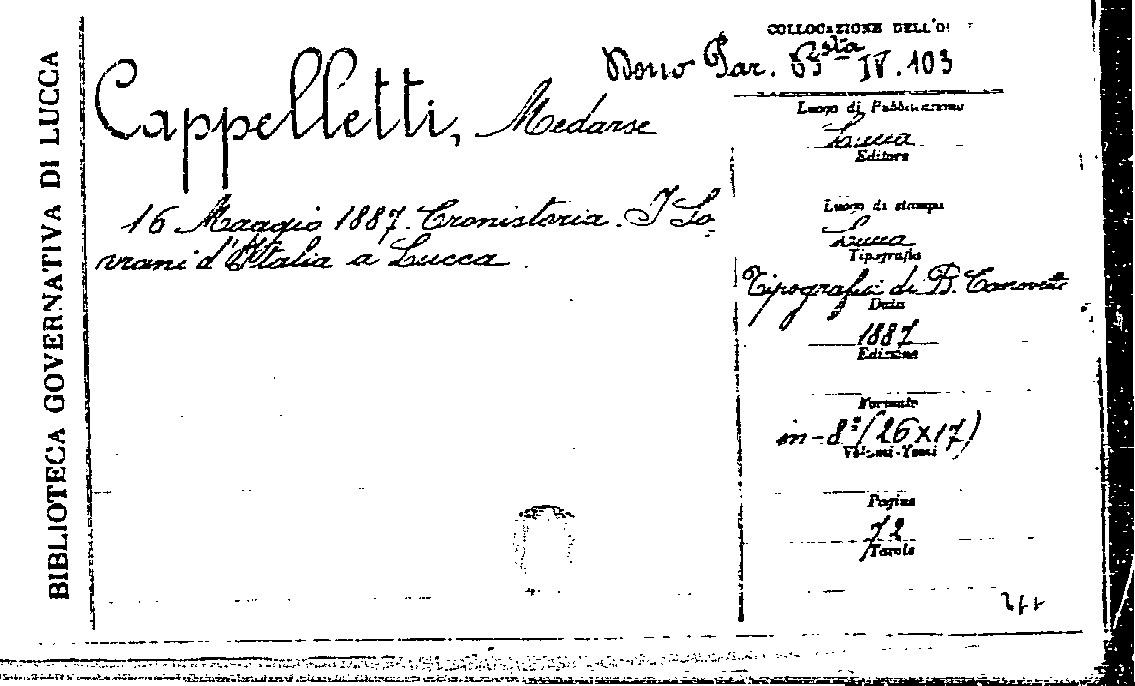 BIBLIOTECA GOVERNATIVA DI LUCCA
COLLOCAZIONE DELL'O
Dono Par. B^sta IV. 103
Cappelletti, Medarse
16 Maggio 1887. Cronistoria. I So-
vrani d'Italia a Lucca.
Luogo di Pubblicazione
Lucca
Editore
Luogo di stampa
Lucca
Tipografia
Tipografia di B. Canovetti
Data
1887
Edizione
Formato
in-8° (26x17)
Volumi-Tomi
Pagine
72
Tavole